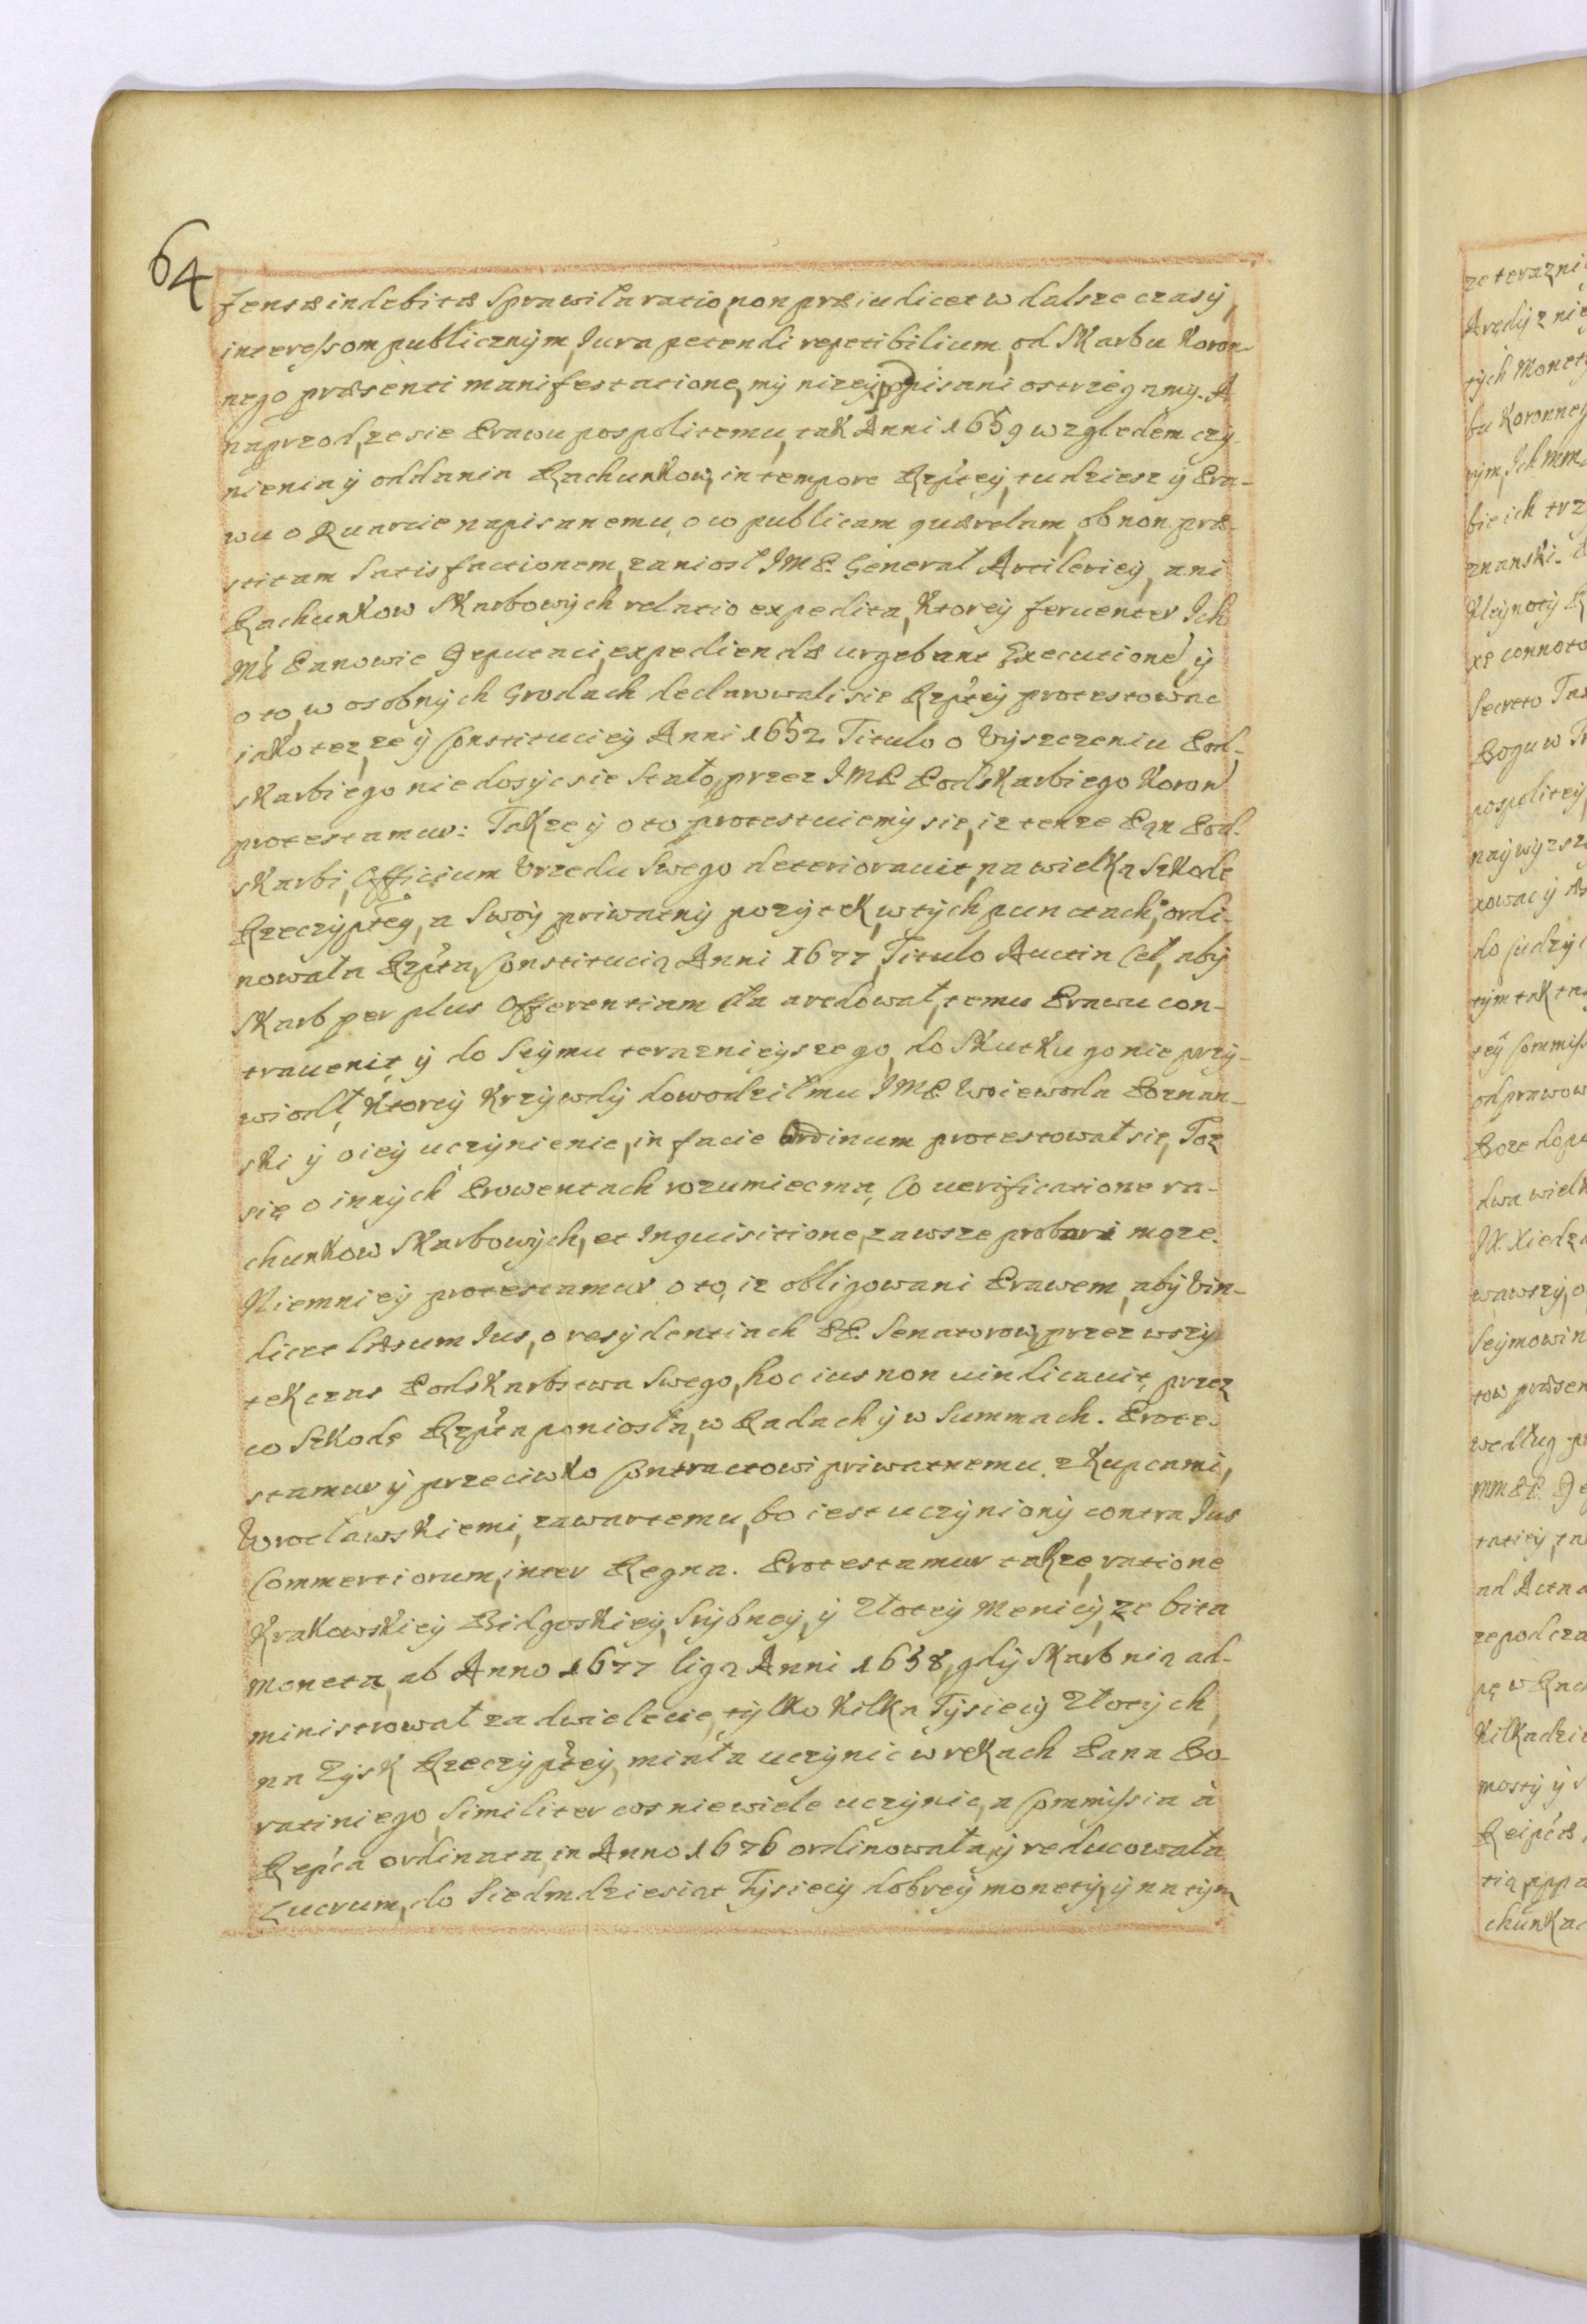 64
fensæ indebitæ Sprawiła ratio, non præiudicet w dalsze czasy,
interessom publicznym, Iura petendi repetibilium, od Skarbu Koron-
nego præsenti manifestatione, my nizey popisani ostrzegamy. A
naprzod, ze sie Prawu pospolitemu, tak Anni 1659 względem czy-
nienia ÿ oddania Rachunkow, in tempore Rzptey, tudziesz ÿ Pra-
wu o Quarcie napisanemu, o co publicam quærelam, ob non præ-
stitam Satisfactionem, zaniosł JMP. General Artileriey, ani
Rachunkow Skarbowych relatio expedita, Ktorey feruenter Ich
Mć Panowie Deputaci, expediendæ urgebant Executione ÿ
o to, w osobnych Grodach declarowali sie Rzptey protestowac
iako tez, ze ÿ Constituciey Anni 1652 Titulo o Vyszczeniu Pod-
skarbiego nie dosyc sie Stało, przez JMP Podskarbiego Koron
protestamur: Takze ÿ o to protestuiemy sie, iz tenze Pan Pod-
skarbi, Officium Vrzedu Swego deteriorauit, na wielką Szkode
Rzeczyptey, a Swoy priwatny pozytek, w tych punctach; ordi-
nowała Rzpta, Constitucią Anni 1677, Titulo Auctia Cel, aby
Skarb per plus Offerentiam cła aredował, temu Prawu con-
trauenit, ÿ do Seymu terazniejszego, do Skutku go nie przy-
wiodł, Ktorey Krzywdy dowodził mu JMP Woiewoda Poznan-
ski ÿ o iey uczynienie, in facie Ordinum protestował sie, Toz
się o innych Prowentach rozumiec ma, Co uerificatione ra-
chunkow Skarbowych, et Inquisitione, zawsze probari moze.
Niemniey protestamur o to, iz obligowani Prawem, aby Vin-
dicet læsum Ius, o resydentiach PP. Senatorow, przez wszy-
tek czas Podskarbstwa Swego, hoc ius non uindicauit, przez
co Szkodę Rzpta poniosła, w Radach ÿ w Summach. Prote-
stamur ÿ przeciwko Contractowi priwatnemu, z Kupcami,
Wrocławskiemi, zawartemu, bo iest uczyniony contra Ius
Commertiorum, inter Regna. Protestamur takze, ratione
Krakowskiey Bidgoskiey, Srybney, ÿ Złotey Meniey, ze bita
moneta, ab Anno 1677 ligą Anni 1658, gdy Skarb nią ad-
ministrował za dwie lecie, tylko Kilka Tysiecy Złotych,
na Zysk Rzeczyptey, miała uczynic w rekach Pana Bo-
ratiniego, Similiter cos niewiele uczynic, a Commissia à
Repca ordinata, in Anno 1676 ordinowała, ÿ reducowała
Lucrum, do Siedmdziesiąt Tysiecy dobrey monety, ÿ na tym